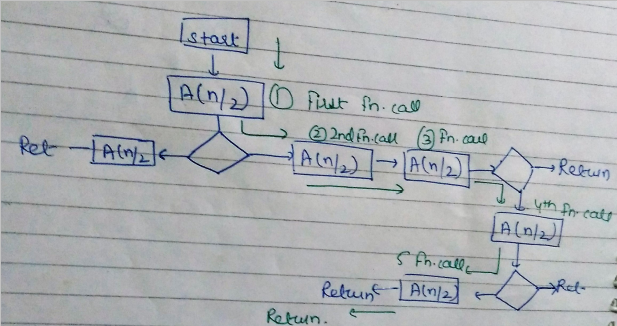 start
A(n/2) ① First fn. call
② 2nd fn. call ③ fn. call
Ret A(n/2 A(n/2) A(n/2) Return
4th fn. call
A(n/2)
5 fn. call
Return A(n/2) Ret
Return.